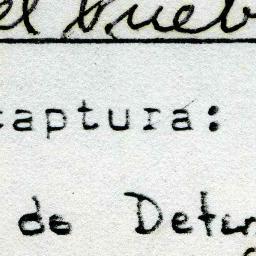 el Pueb
captura:
de Deten